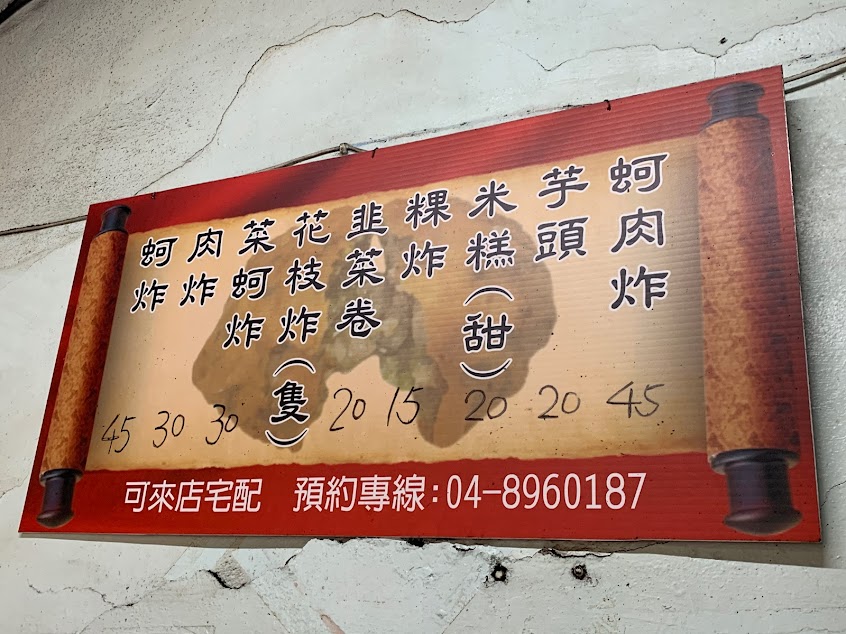 蚵肉炸 45
芋頭 20
米糕(甜) 20
粿炸 15
韭菜卷 20
花枝炸(隻)
菜蚵炸 30
肉炸 30
蚵炸 45
可來店宅配 預約專線:04-8960187